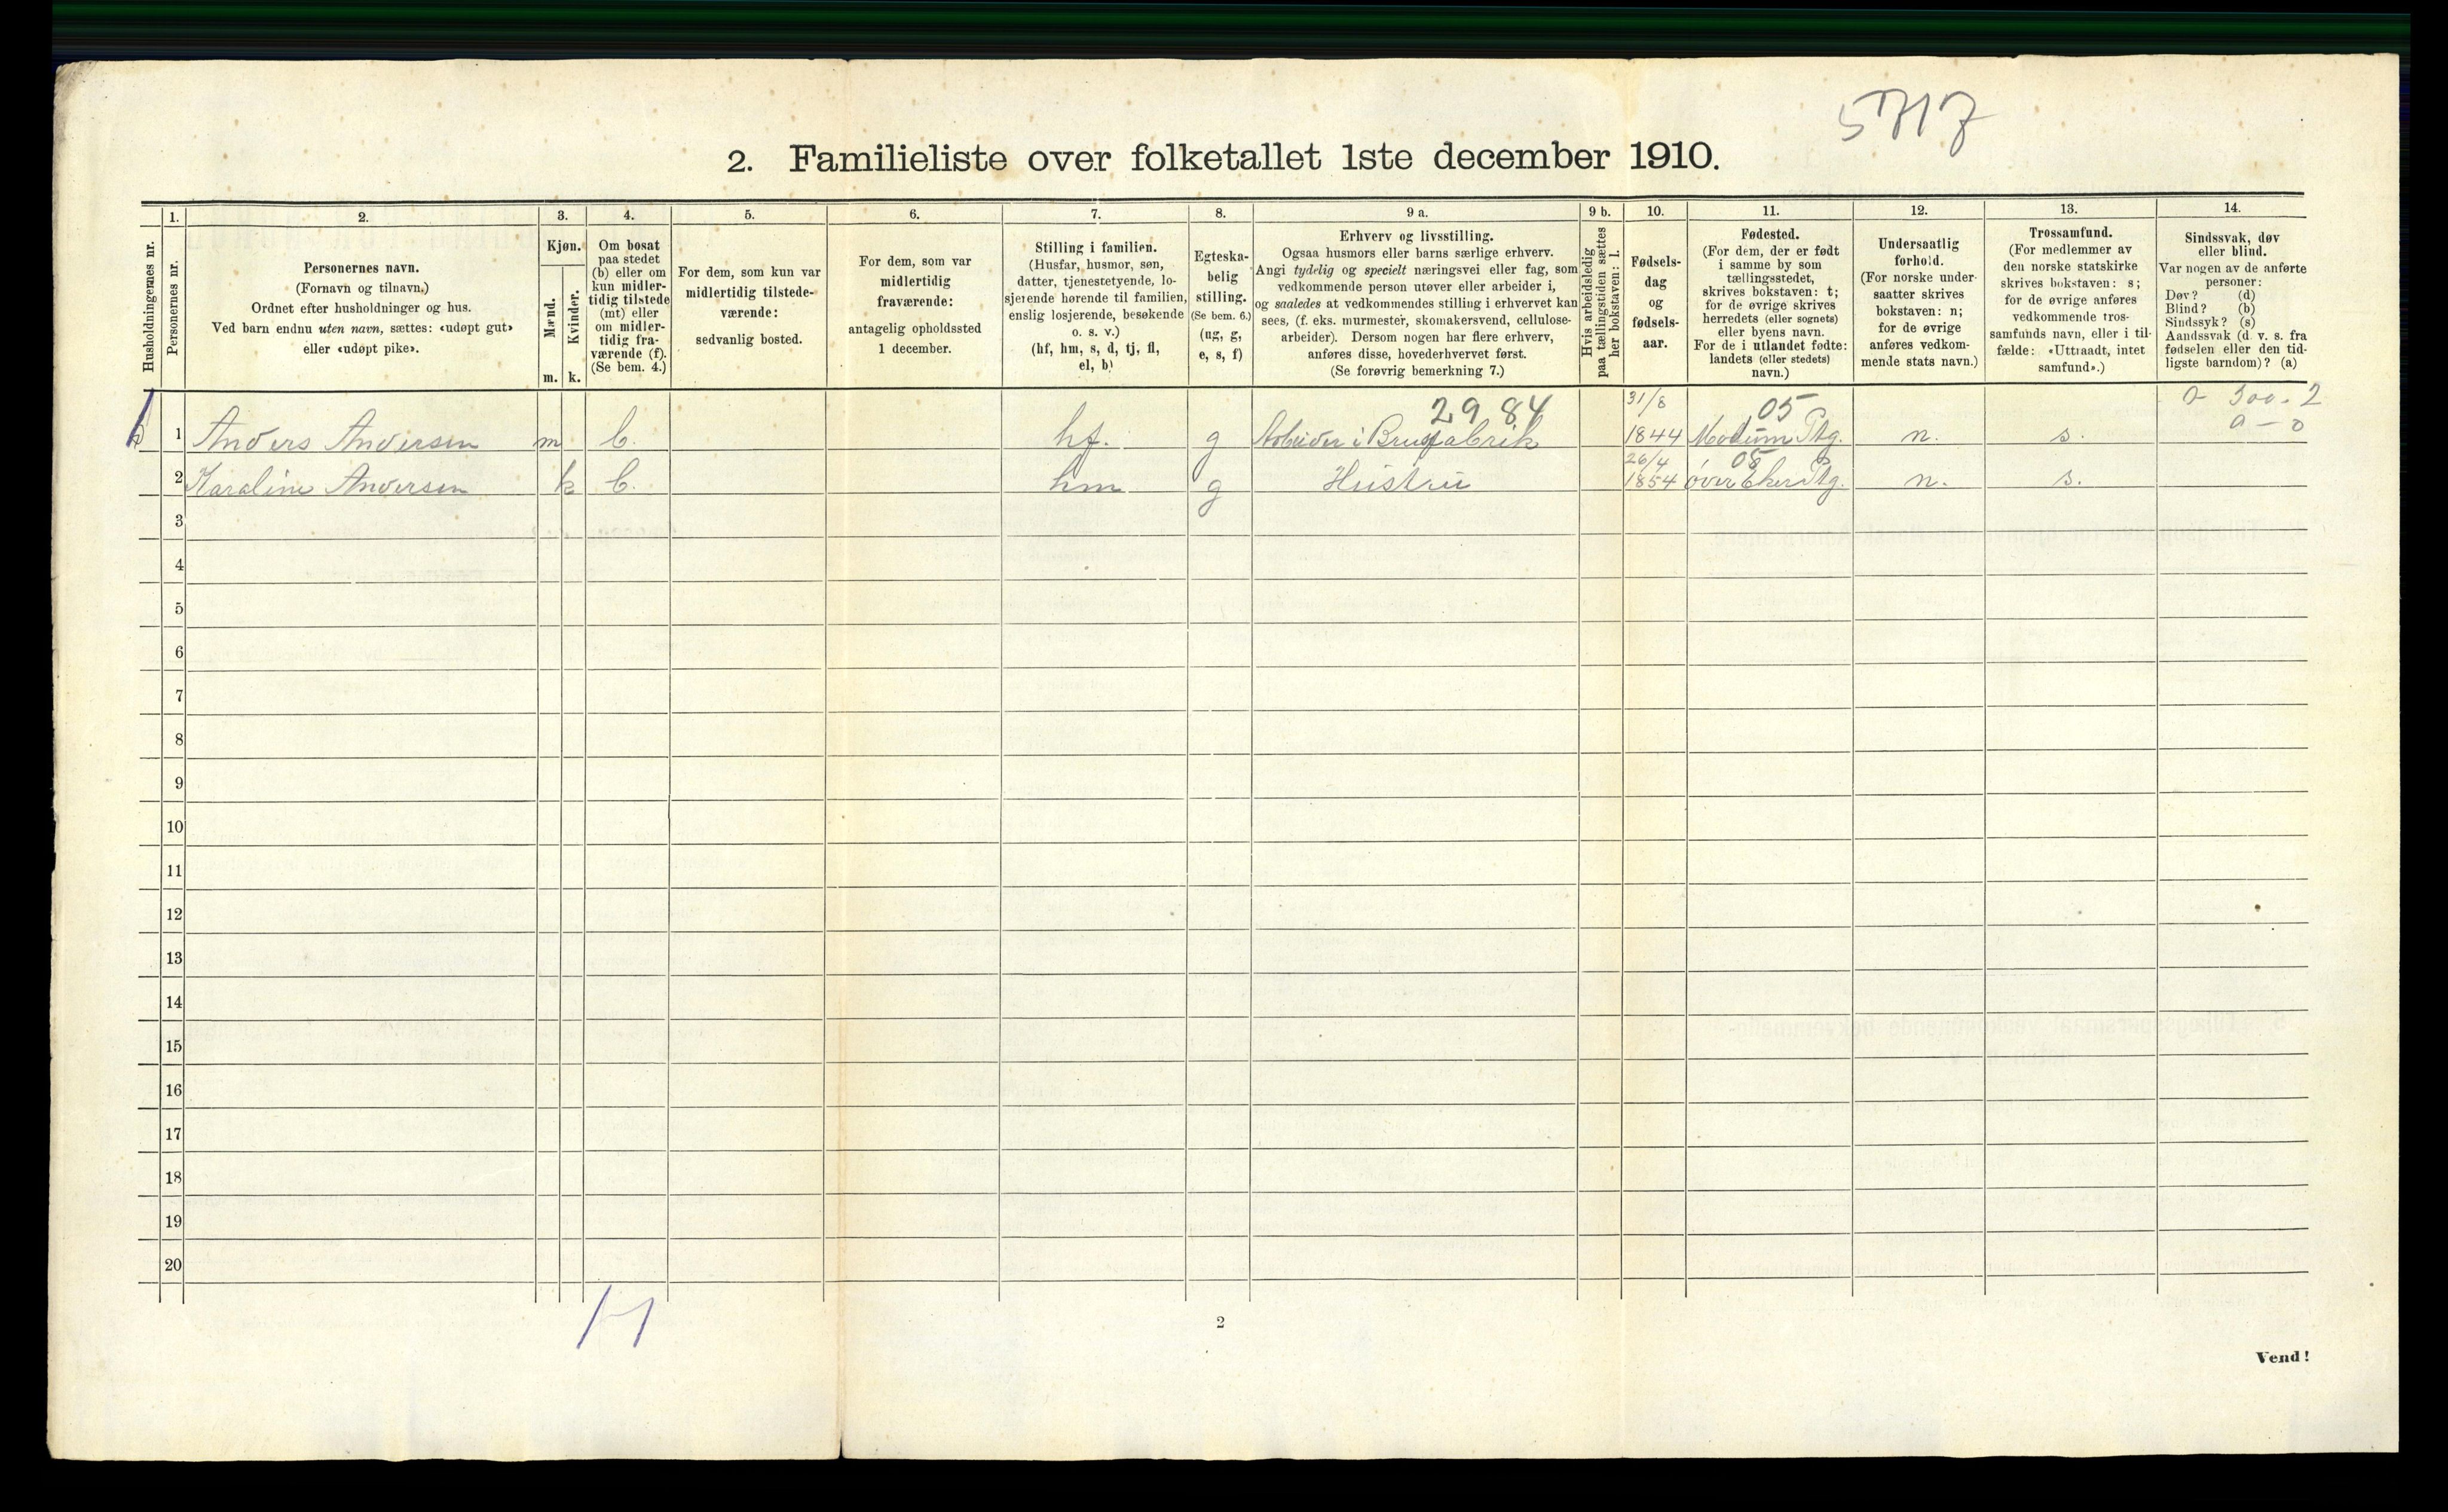 5717
2. Familieliste over folketallet 1ste december 1910.
Husholdningernes nr.
1.
Personernes nr.
2.
Personernes navn.
(Fornavn og tilnavn.)
Ordnet efter husholdninger og hus.
Ved barn endnu uten navn, sættes: «udøpt gut»
eller «udøpt pike».
3.
Kjøn.
Mænd.
Kvinder.
m. k.
4.
Om bosat
paa stedet
(b) eller om
kun midler-
tidig tilstede
(mt) eller
om midler-
tidig fra-
værende (f).
(Se bem. 4.)
5.
For dem, som kun var
midlertidig tilstede-
værende:
sedvanlig bosted.
6.
For dem, som var
midlertidig
fraværende:
antagelig opholdssted
1 december.
7.
Stilling i familien.
(Husfar, husmor, søn,
datter, tjenestetyende, lo-
sjerende hørende til familien,
enslig losjerende, besøkende
o. s. v.)
(hf, hm, s, d, tj, fl,
el, b)
8.
Egteska-
belig
stilling.
(Se bem. 6.)
(ug, g,
e, s, f)
9 a.
Erhverv og livsstilling.
Ogsaa husmors eller barns særlige erhverv.
Angi tydelig og specielt næringsvei eller fag, som
vedkommende person utøver eller arbeider i,
og saaledes at vedkommendes stilling i erhvervet kan
sees, (f. eks. murmester, skomakersvend, cellulose-
arbeider). Dersom nogen har flere erhverv,
anføres disse, hovederhvervet først.
(Se forøvrig bemerkning 7.)
9 b.
Hvis arbeidsledig
paa tællingstiden sættes
her bokstaven: l.
10.
Fødsels-
dag
og
fødsels-
aar.
11.
Fødested.
(For dem, der er født
i samme by som
tællingsstedet,
skrives bokstaven: t;
for de øvrige skrives
herredets (eller sognets)
eller byens navn.
For de i utlandet fødte:
landets (eller stedets)
navn.)
12.
Undersaatlig
forhold.
(For norske under-
saatter skrives
bokstaven: n;
for de øvrige
anføres vedkom-
mende stats navn.)
13.
Trossamfund.
(For medlemmer av
den norske statskirke
skrives bokstaven: s;
for de øvrige anføres
vedkommende tros-
samfunds navn, eller i til-
fælde: «Uttraadt, intet
samfund».)
14.
Sindssvak, døv
eller blind.
Var nogen av de anførte
personer:
Døv? (d)
Blind? (b)
Sindssyk? (s)
Aandssvak (d. v. s. fra
fødselen eller den tid-
ligste barndom)? (a)
2984 31/8 05 0 300-2
1 Anders Andersen m b. hf. g Arbeider i Brugfabrik 1844 Modum Ptg. n. s. 0-0
26/4 05
2 Karaline Andersen k b. hm g Hustru 1854 över Eker Ptg. n. s.
3
4
5
6
7
8
9
10
11
12
13
14
15
16
17
18
19
20
1-1
2
Vend!